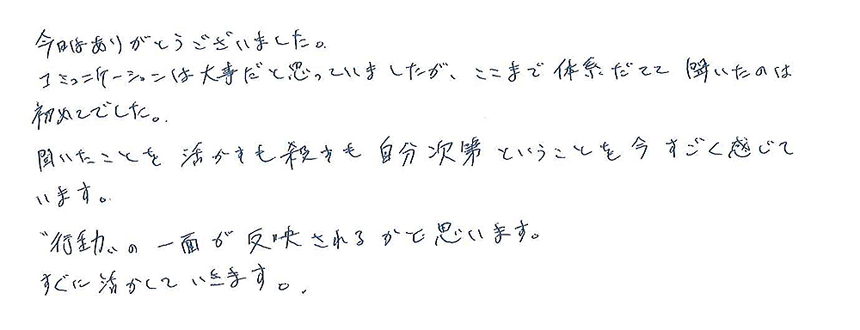 今日はありがとうございました。
コミュニケーションは大事だと思っていましたが、ここまで体系だてて聞いたのは
初めてでした。
聞いたことを活かすも殺すも自分次第ということを今すごく感じて
います。
"行動"の一面が反映されるかと思います。
すぐに活かしていきます。